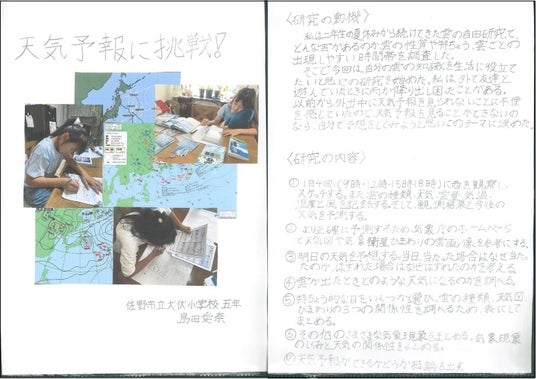 天気予報に挑戦!
佐野市立犬伏小学校 五年
島田
〈研究の動機〉
私は二年生の夏休みから続けてきた雲の自由研究で、
どんな雲があるのか雲の性質や特ちょう、雲ごとの
出現しやすい時間帯を調査した。
そこで今回は、自分の雲の知識を生活に役立て
たいと思いこの研究を始めた。私は外で友達と
遊んでいたときに雨が降り出し困ったことがある。
以前から外出中に天気予報を見られないことに不便
を感じていたので天気予報を見ることができないの
なら、自分で予想をしてみようと思いこのテーマに決めた。
〈研究の内容〉
①1日4回、(9時・12時・15時・18時)に西を観察し、
スケッチする。また雲の種類、天気、雲量、気温、
湿度と風を記録する。そして、観測結果と今後の
天気を予測する。
②より正確に予測するため気象庁のホームページ
で天気図や気象衛星ひまわりの雲画像を参考にする。
③明日の天気を予想する。当日、当たった場合はなぜ当た
ったのか、はずれた場合はなぜはずれたのかを考える。
④雲が出たときどのような天気になるのかを調べる。
⑤特ちょう的な日をいくつか選び、雲の種類、天気図
ひまわりの3つの関係性を調べるため、表にして
まとめる。
⑥その他の、さまざまな気象現象もまとめる。気象現象
のしくみと天気の関係性をまとめる。
⑦天気予報ができるかどうか結論を出す